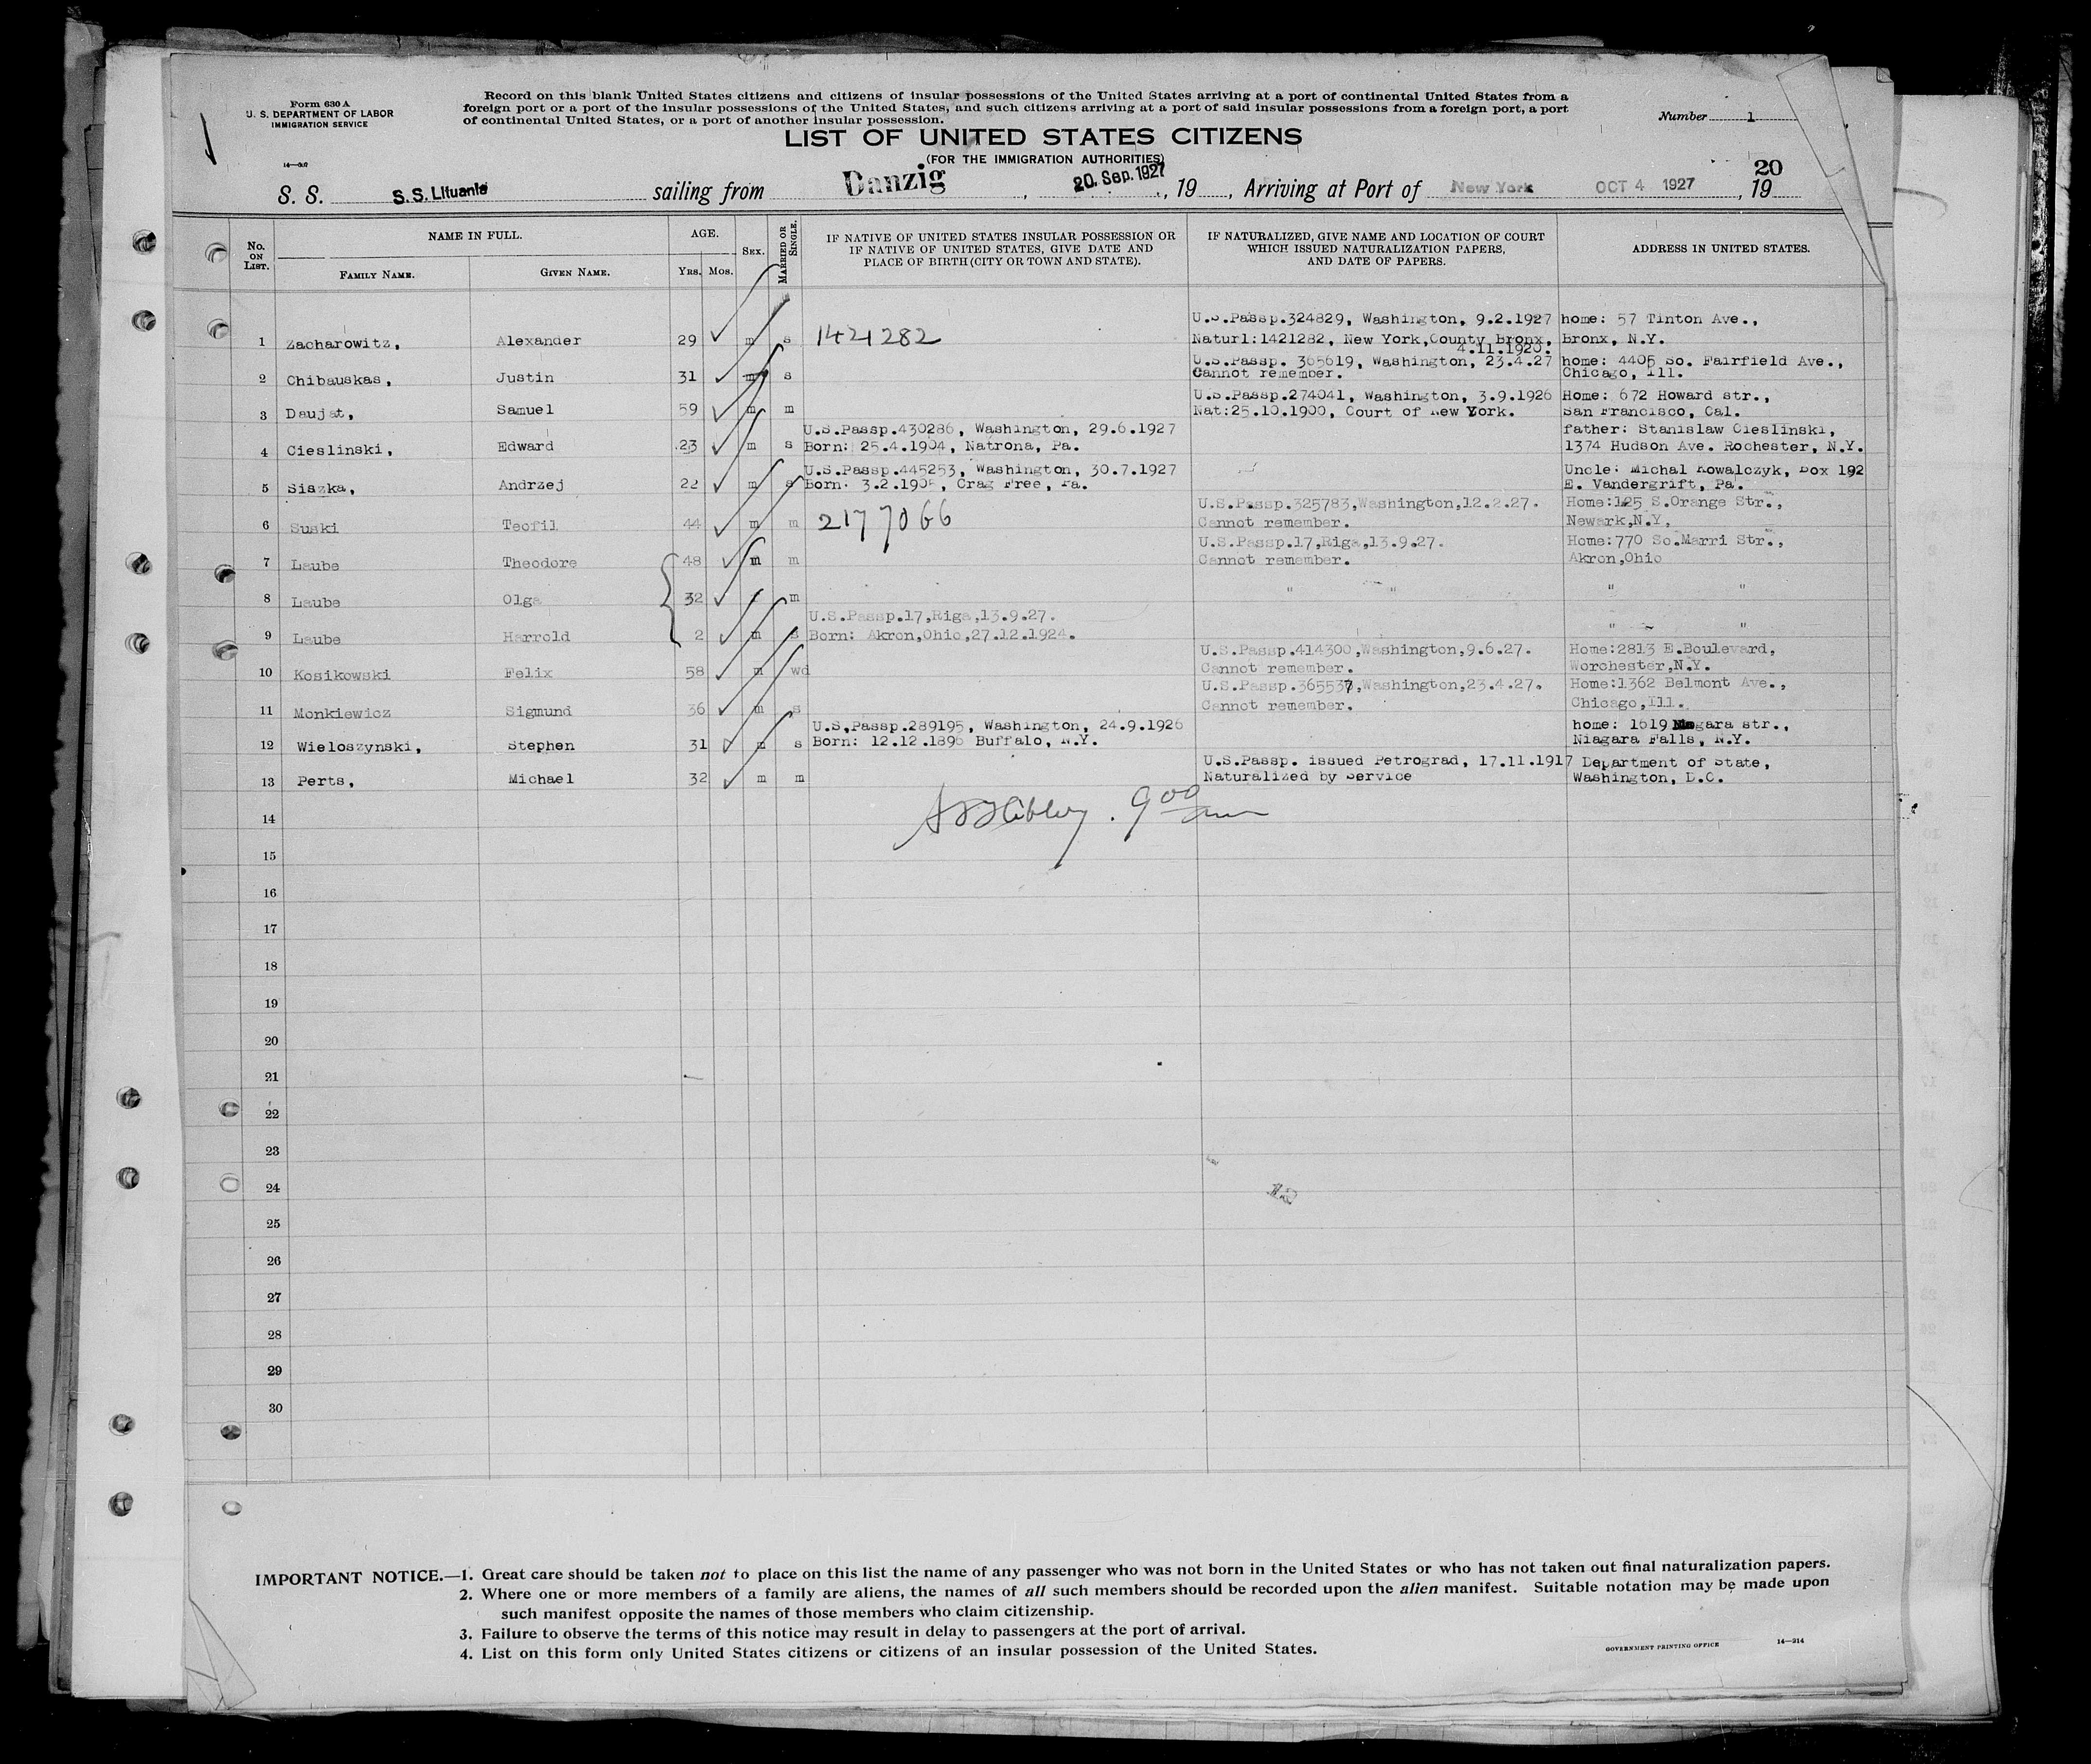 Form 630 A
U. S. DEPARTMENT OF LABOR
IMMIGRATION SERVICE
Record on this blank United States citizens and citizens of insular possessions of the United States arriving at a port of continental United States from a
foreign port or a port of the insular possessions of the United States, and such citizens arriving at a port of said insular possessions from a foreign port, a port
of continental United States, or a port of another insular possession.
Number 1
LIST OF UNITED STATES CITIZENS
(FOR THE IMMIGRATION AUTHORITIES)
20
S. S. S.S. Lituania sailing from Danzig, 20. Sep. 1927, 19 , Arriving at Port of New York OCT 4 1927, 19
No. ON LIST. NAME IN FULL. AGE. SEX. MARRIED OR SINGLE. IF NATIVE OF UNITED STATES INSULAR POSSESSION OR IF NATIVE OF UNITED STATES, GIVE DATE AND PLACE OF BIRTH (CITY OR TOWN AND STATE). IF NATURALIZED, GIVE NAME AND LOCATION OF COURT WHICH ISSUED NATURALIZATION PAPERS, AND DATE OF PAPERS. ADDRESS IN UNITED STATES.
FAMILY NAME. GIVEN NAME. YRS. MOS.
U.S.Passp.324829, Washington, 9.2.1927 home: 57 Tinton Ave.,
1 Zacharowitz, Alexander 29 m s 1421282 Naturl:1421282, New York,County Bronx, Bronx, N.Y.
4.11.1920.
U.S.Passp. 365619, Washington, 23.4.27 home: 4405 So. Fairfield Ave.,
2 Chibauskas, Justin 31 m s Cannot remember. Chicago, Ill.
U.S.Passp.274041, Washington, 3.9.1926 Home: 672 Howard str.,
3 Daujat, Samuel 59 m m Nat:25.10.1900, Court of New York. San Francisco, Cal.
U.S.Passp.430286, Washington, 29.6.1927 father: Stanislaw Cieslinski,
4 Cieslinski, Edward 23 m s Born: 25.4.1904, Natrona, Pa. 1374 Hudson Ave. Rochester, N.Y.
U.S.Passp.445253, Washington, 30.7.1927 Uncle: Michal Kowalczyk, Box 192
5 Siszka, Andrzej 22 m s Born: 3.2.1905, Crag Free, Pa. E. Vandergrift, Pa.
U.S.Passp.325783,Washington,12.2.27. Home:125 S.Orange Str.,
6 Suski Teofil 44 m m 2177066 Cannot remember. Newark,N.Y,
U.S.Passp.17,Riga,13.9.27. Home:770 So.Marri Str.,
7 Laube Theodore 48 m m Cannot remember. Akron,Ohio
8 Laube Olga 32 f m " " " "
U.S.Passp.17,Riga,13.9.27.
9 Laube Harrold 2 m s Born: Akron,Ohio,27.12.1924. " "
U.S.Passp.414300,Washington,9.6.27. Home:2813 E.Boulevard,
10 Kosikowski Felix 58 m wd Cannot remember. Worchester,N.Y.
U.S.Passp.365537,Washington,23.4.27. Home:1362 Belmont Ave.,
11 Monkiewicz Sigmund 36 m s Cannot remember. Chicago,Ill.
U.S,Passp.289195, Washington, 24.9.1926 home: 1619 Niagara str.,
12 Wieloszynski, Stephen 31 m s Born: 12.12.1896 Buffalo, N.Y. Niagara Falls, N.Y.
U.S.Passp. issued Petrograd, 17.11.1917 Department of State,
13 Perts, Michael 32 m m Naturalized by Service Washington, D.C.
9 00
14
15
16
17
18
19
20
21
22
23
24
25
26
27
28
29
30
IMPORTANT NOTICE.—1. Great care should be taken not to place on this list the name of any passenger who was not born in the United States or who has not taken out final naturalization papers.
2. Where one or more members of a family are aliens, the names of all such members should be recorded upon the alien manifest. Suitable notation may be made upon
such manifest opposite the names of those members who claim citizenship.
3. Failure to observe the terms of this notice may result in delay to passengers at the port of arrival.
4. List on this form only United States citizens or citizens of an insular possession of the United States.
GOVERNMENT PRINTING OFFICE 14—214